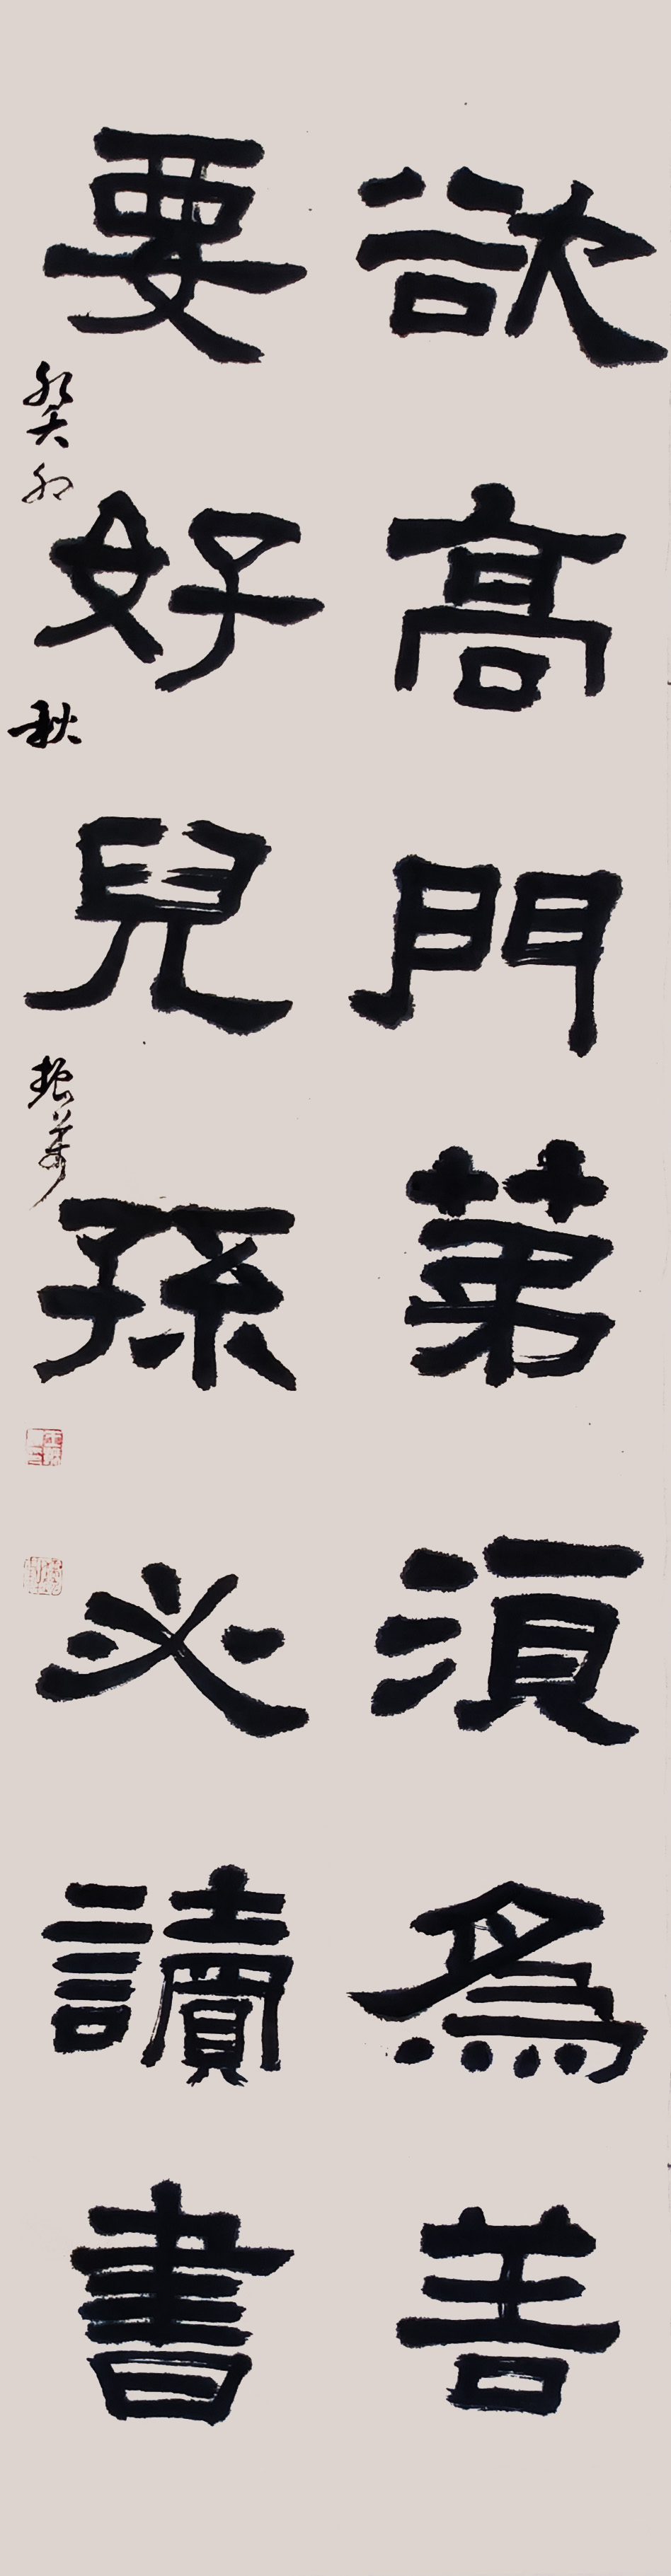 欲高門第須為善
要好兒孫必讀書
癸卯秋